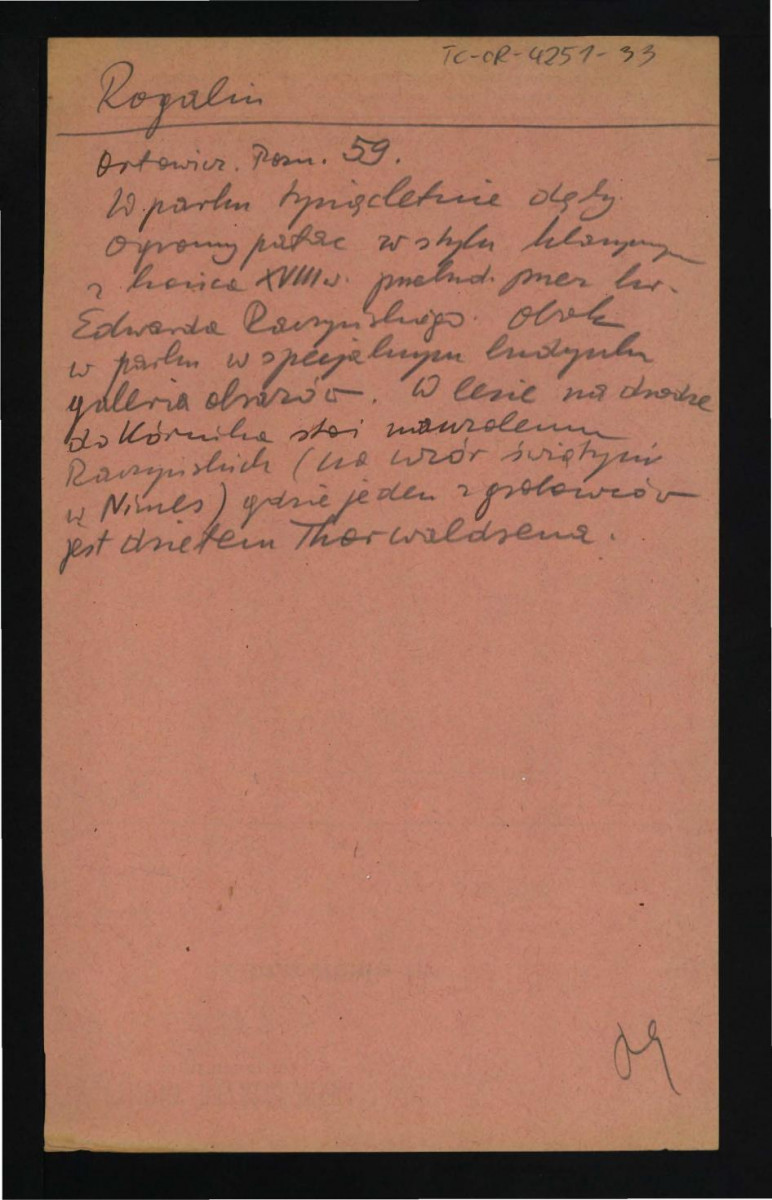 TC-OR-4251-33
Rogalin
Orłowicz. Pozn. 59.
W parku tysiącletnie dęby
ogromny pałac w stylu klasycznym
z końca XVIII w. przebud. przez hr.
Edwarda Raczyńskiego. Obok
w parku w specjalnym budynku
galeria obrazów. W lesie na drodze
do Kórnika stoi mauzoleum
Raczyńskich (na wzór świątyni
w Nimes) gdzie jeden z grobowców
jest dziełem Thorwaldsena.